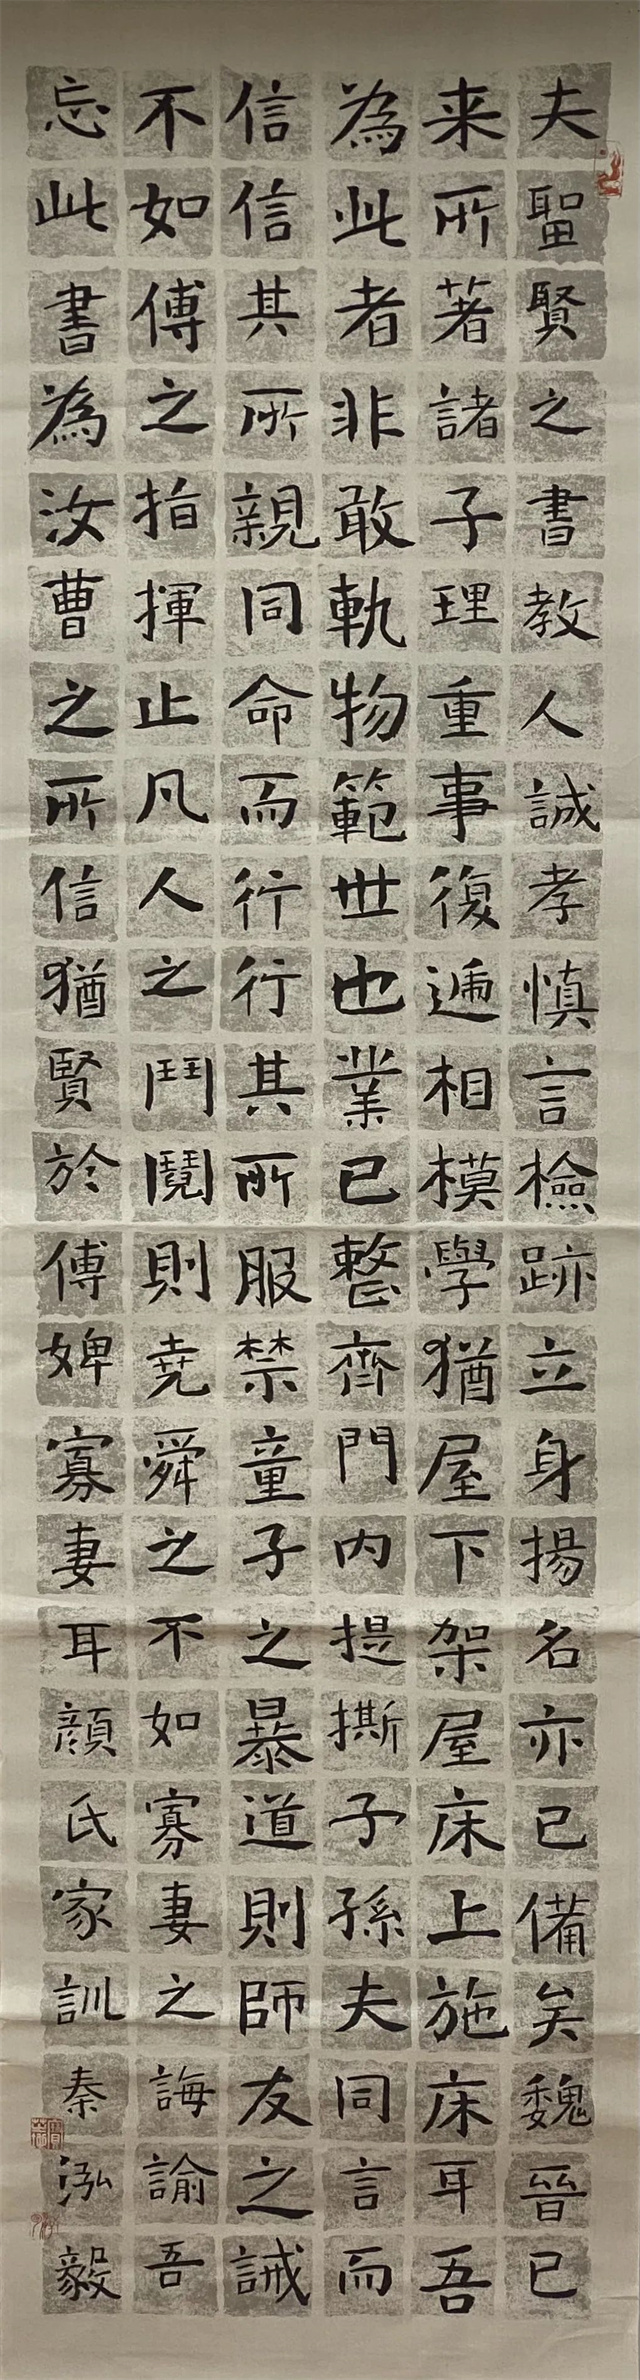 夫聖賢之書教人誠孝慎言檢跡立身揚名亦已備矣魏晉已
来所著諸子理重事復遞相模學猶屋下架屋床上施床耳吾
為此者非敢軌物範世也業已整齊門内提撕子孫夫同言而
信信其所親同命而行行其所服禁童子之暴道則師友之誡
不如傅之指揮止凡人之鬥鬩則堯舜之不如寡妻之誨諭吾
忘此書為汝曹之所信猶賢於傅婢寡妻耳顏氏家訓秦泓毅